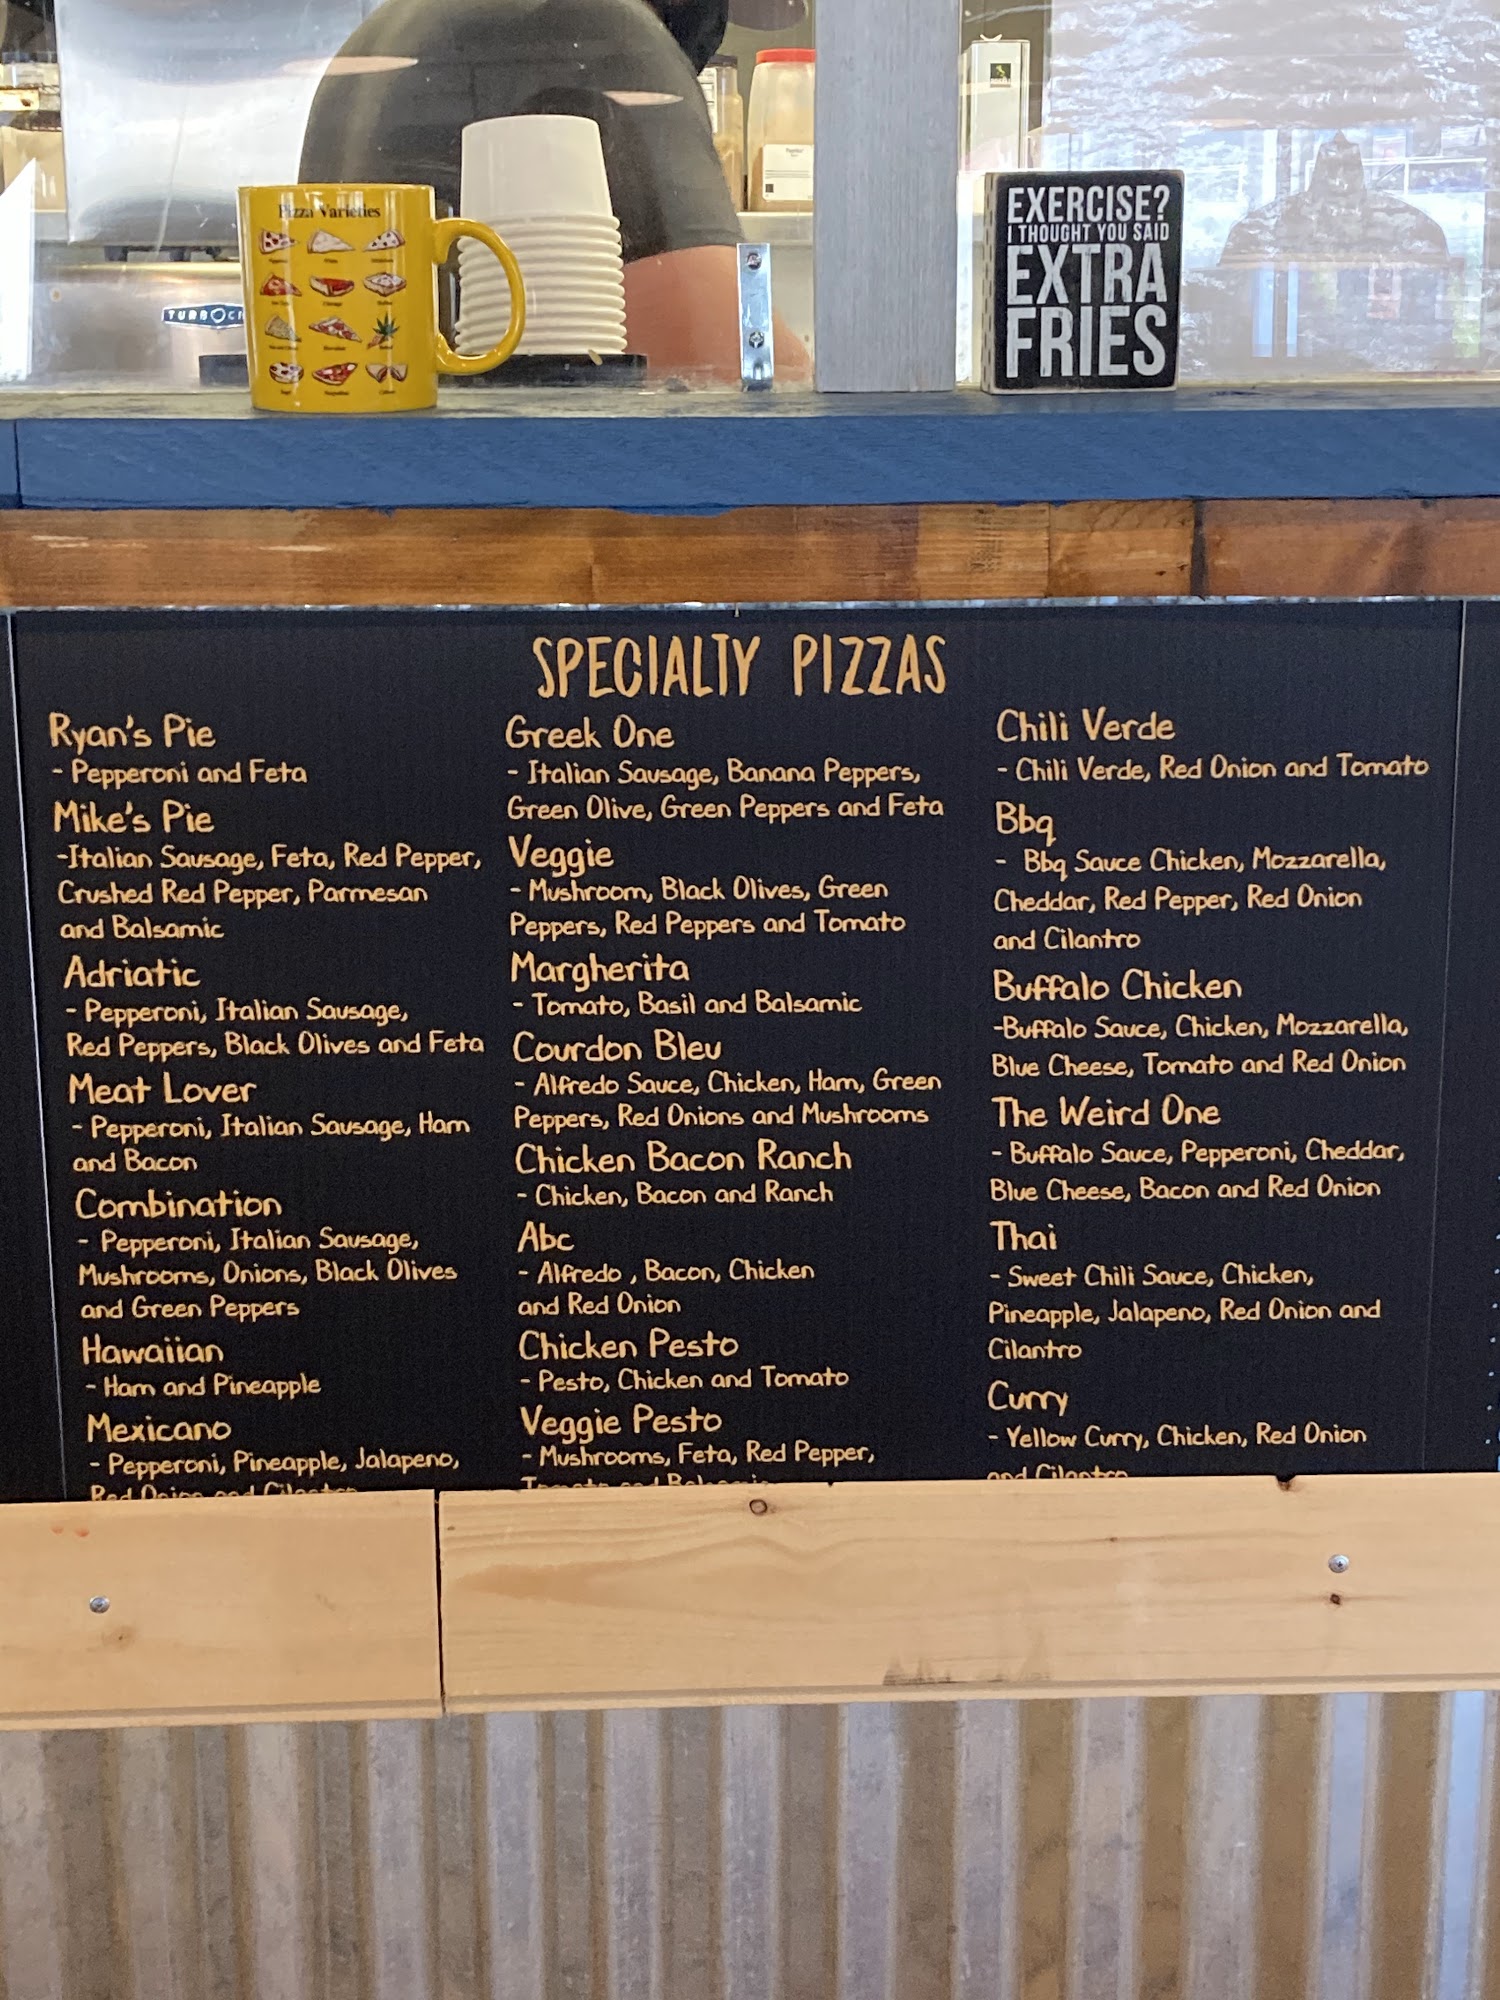 Pizza Varieties
TURBOCH
EXERCISE?
I THOUGHT YOU SAID
EXTRA
FRIES
SPECIALTY PIZZAS
Ryan's Pie
- Pepperoni and Feta
Mike's Pie
-Italian Sausage, Feta, Red Pepper,
Crushed Red Pepper, Parmesan
and Balsamic
Adriatic
- Pepperoni, Italian Sausage,
Red Peppers, Black Olives and Feta
Meat Lover
- Pepperoni, Italian Sausage, Ham
and Bacon
Combination
- Pepperoni, Italian Sausage,
Mushrooms, Onions, Black Olives
and Green Peppers
Hawaiian
- Ham and Pineapple
Mexicano
- Pepperoni, Pineapple, Jalapeno,
Red Onion and Cilantro
Greek One
- Italian Sausage, Banana Peppers,
Green Olive, Green Peppers and Feta
Veggie
- Mushroom, Black Olives, Green
Peppers, Red Peppers and Tomato
Margherita
- Tomato, Basil and Balsamic
Courdon Bleu
- Alfredo Sauce, Chicken, Ham, Green
Peppers, Red Onions and Mushrooms
Chicken Bacon Ranch
- Chicken, Bacon and Ranch
Abc
- Alfredo , Bacon, Chicken
and Red Onion
Chicken Pesto
- Pesto, Chicken and Tomato
Veggie Pesto
- Mushrooms, Feta, Red Pepper,
Tomato and Balsamic
Chili Verde
- Chili Verde, Red Onion and Tomato
Bbq
- Bbq Sauce Chicken, Mozzarella,
Cheddar, Red Pepper, Red Onion
and Cilantro
Buffalo Chicken
-Buffalo Sauce, Chicken, Mozzarella,
Blue Cheese, Tomato and Red Onion
The Weird One
- Buffalo Sauce, Pepperoni, Cheddar,
Blue Cheese, Bacon and Red Onion
Thai
- Sweet Chili Sauce, Chicken,
Pineapple, Jalapeno, Red Onion and
Cilantro
Curry
- Yellow Curry, Chicken, Red Onion
and Cilantro